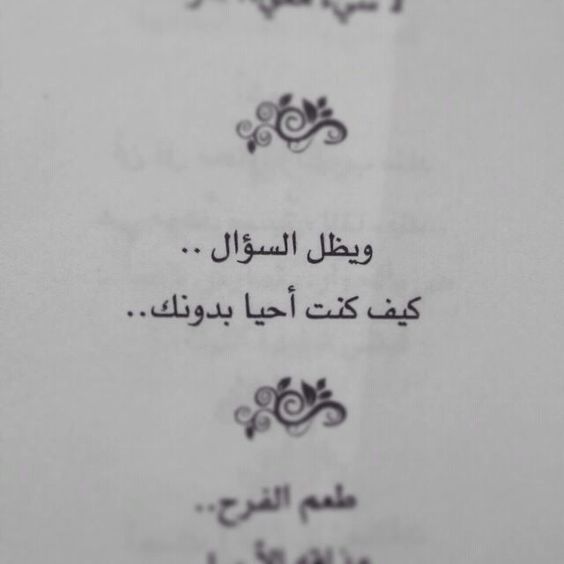 ويظل السؤال ..
كيف كنت أحيا بدونك..
طعم الفرح..